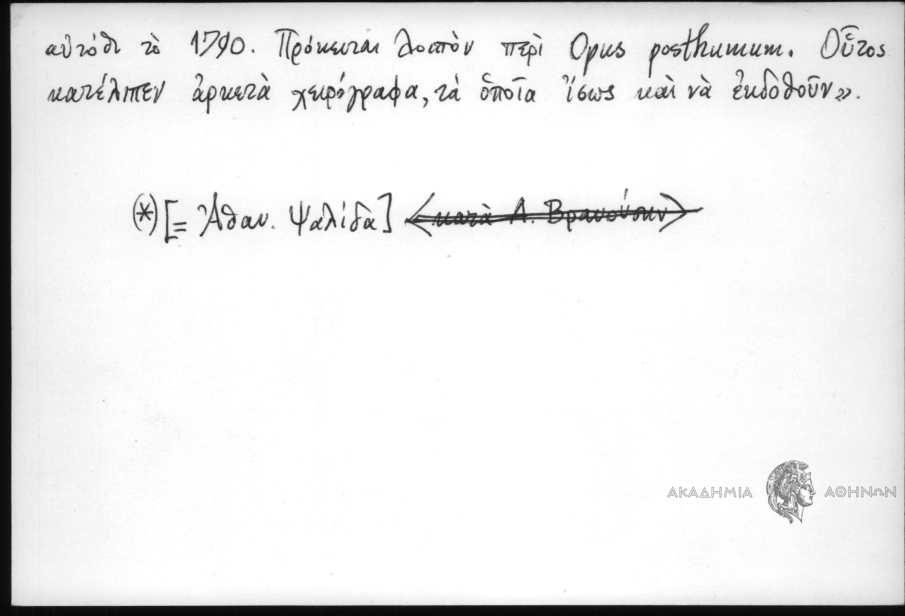 αὐτόθι τὸ 1790. Πρόκειται λοιπὸν περὶ Opus posthumum. Οὗτος
κατέλιπεν ἀρκετὰ χειρόγραφα, τὰ ὁποῖα ἴσως καὶ νὰ ἐκδοθοῦν».
(*) [= Ἀθαν. Ψαλίδα] <κατὰ Λ. Βρανούσην>
ΑΚΑΔΗΜΙΑ ΑΘΗΝΩΝ